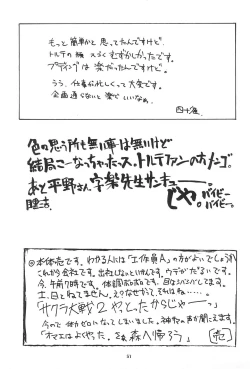 もっと簡単かと思ってたんですけど
トルテの服 えらくむずかしかったです。
プディングは楽だったんですけど。
うう、仕事が忙しくって大変です。
企画通らないと楽でいいなぁ
色々思う所も無い事は無いけど
結局こーなっちゃったス。トルテファンのおメンゴ。
あと平野さん、宇楽先生サンキュー
じゃ。バイビー
バイビー。
◎本体売です。わかる人には「工作員A」の方がよいでしょうか
これから会社です。出社しなきゃいけんです。ウデがだるいです。
今、午前7時です。体調最悪です。目はシパシパしてます。
土、日とねてません。えりなぜかって、それはね…
「サクラ大戦2やっとったからじゃー」
今ので体力ゼロになてしまいました。神々の声が聞えます。
「オマエはよくやった。さぁ森へ帰ろう」
51